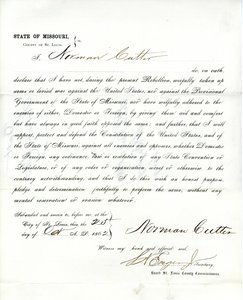 STATE OF MISSOURI,
COUNTY OF ST. LOUIS, } ss.
I, Norman Cutter
do, on oath,
declare that I have not, during the present Rebellion, wilfully taken up
arms or levied war against the United States, nor against the Provisional
Government of the State of Missouri, nor have wilfully adhered to the
enemies of either, Domestic or Foreign, by giving them aid and comfort
but have always in good faith opposed the same; and further, that I will
support, protect and defend the Constitution of the United States, and of
the State of Missouri, against all enemies and opposers, whether Domestic
or Foreign, any ordinance, law or resolution of any State Convention or
Legislature, or of any order or organization, secret or otherwise to the
contrary notwithstanding; and that I do this with an honest purpose,
pledge and determination faithfully to perform the same, without any
mental reservation or evasion whatever.
Subscribed and sworn to before me at the
City of St. Louis, this the 21st
day of Oct A. D. 1862
Norman Cutter
Witness my hand and official seal.
Secretary
Board St. Louis County Commissioners.